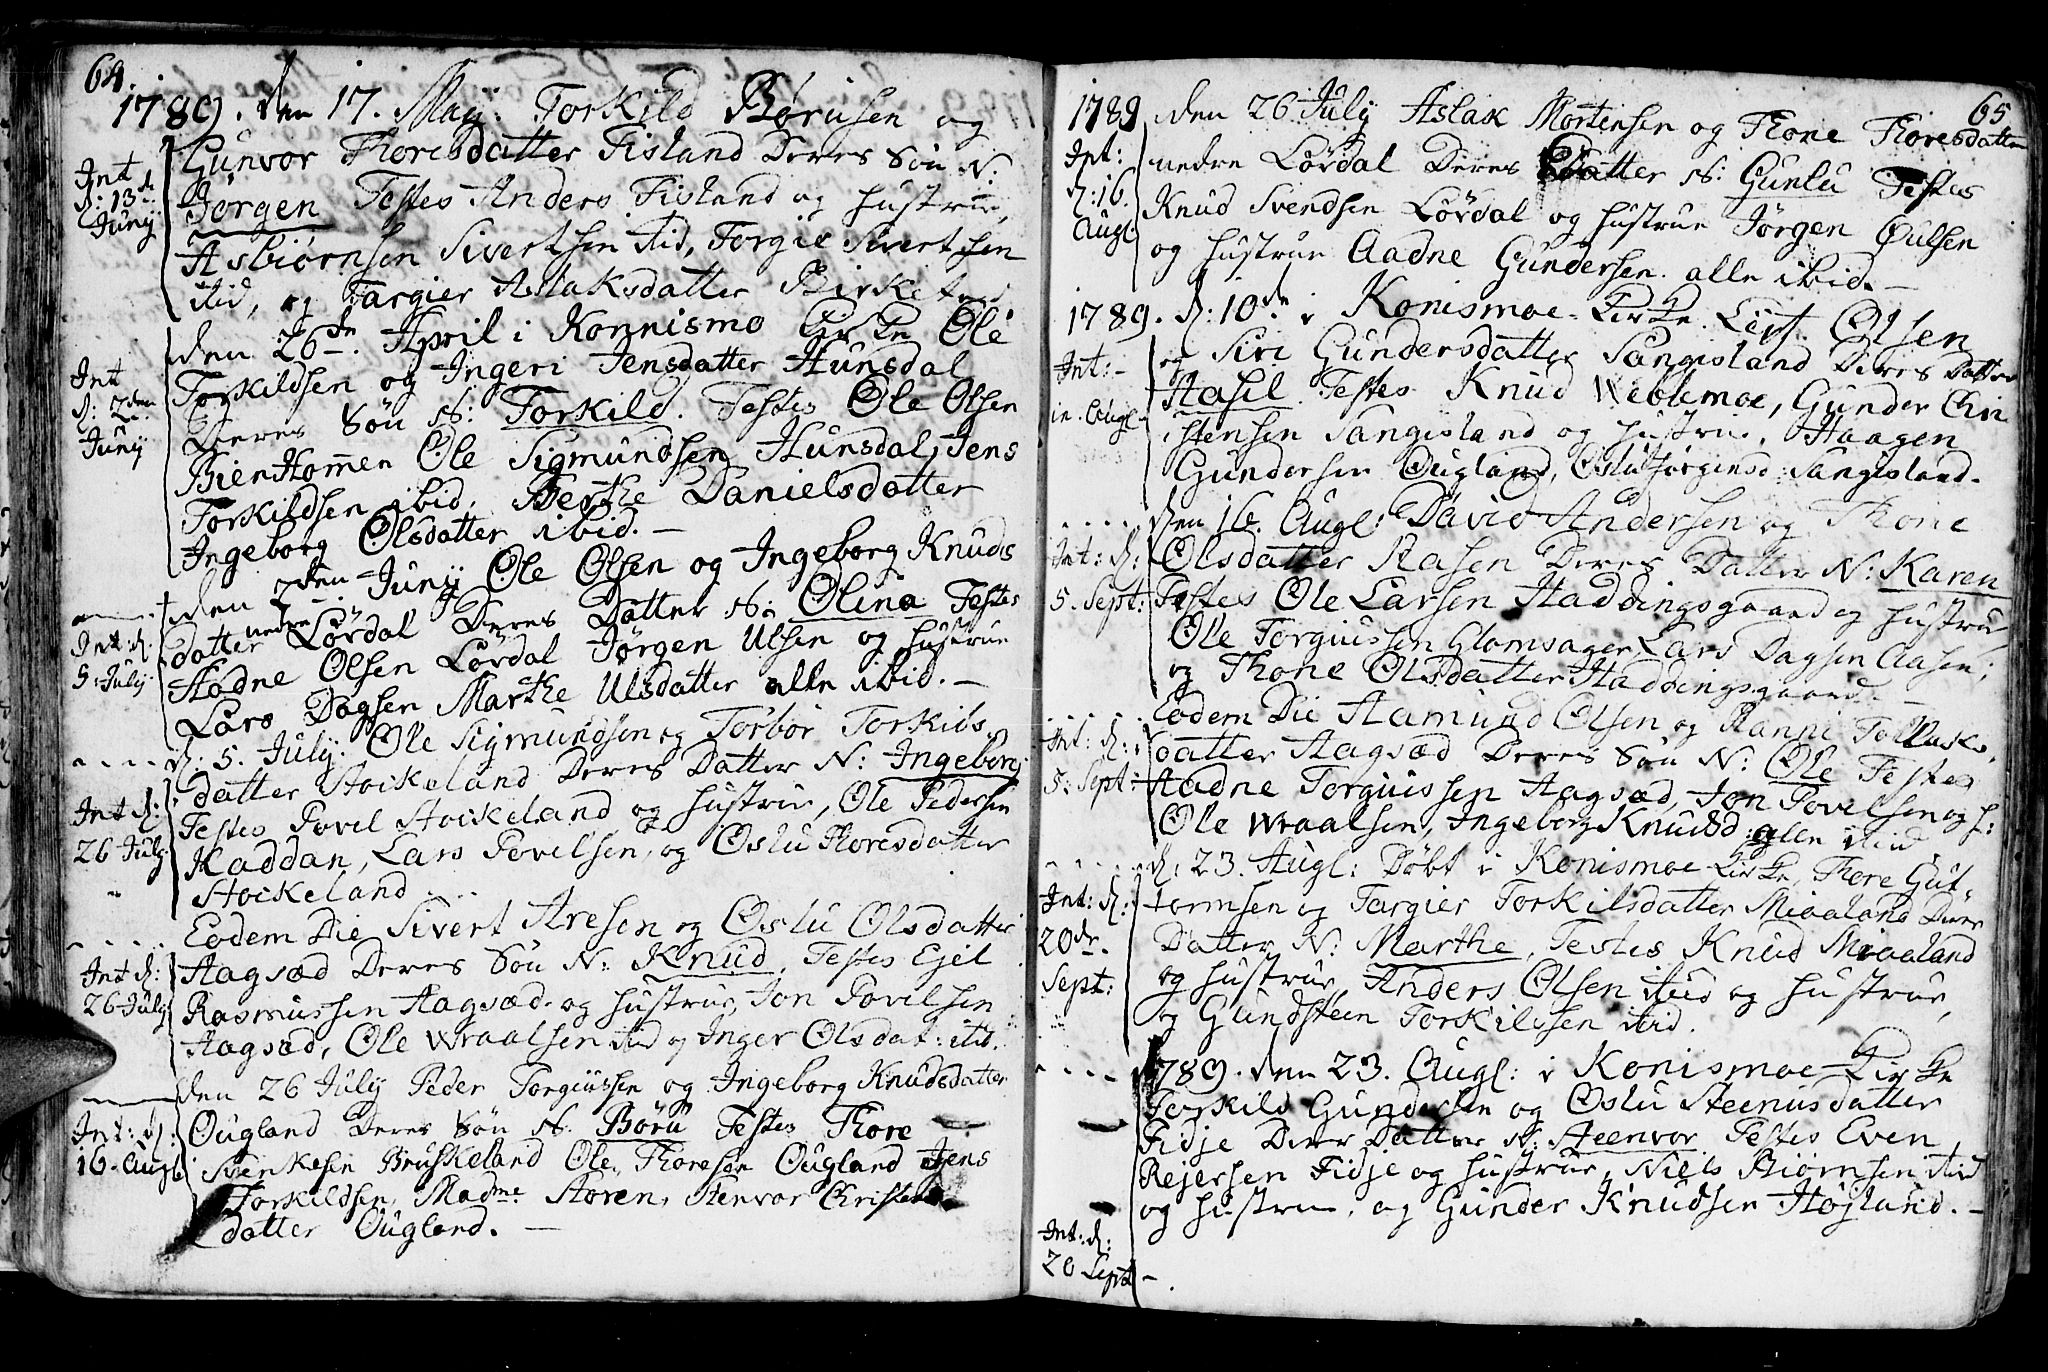 64.
1789. den 17. Maij. Torkild Børusen og
Gunvor Thoresdatter Fisland Deres Søn N:
Jørgen Testes Anders Fisland og hustrue,
Asbiørnsen Sivertsen ibid, Torgie Sivertsen
ibid, og Targier Aslaksdatter Birkeland
Int
d: 13de
Juny
den 26de April i Konnismo Kirke Ole
Torkildsen og Ingeri Jensdatter Hunsdal
Deres Søn N: Torkild. Testes Ole Olsen
Ole Sigmundsen Hunsdal, Jens
Torkildsen ibid. Berthe Danielsdatter
Ingeborg Olsdatter ibid. —
Int
d: 7den
Juny
den 7den Juny Ole Olsen og Ingeborg Knuds
datter nedre Lördal Deres Datter N: Olina Testes
Aadne Olsen Lördal Jørgen Ulsen og hustrue
Lars Dagsen Marthe Ulsdatter alle ibid. —
Int: d:
5 July
d: 5. July. Ole Sigmundsen og Torbor Torkids
datter Stockeland Deres Datter N: Ingeborg
Testes Povel Stockeland og hustrue, Ole Pedersen
Kaddan, Lars Povelsen, og Oslu Thoresdatter
Stockeland
Int d:
26 July
Eodem Die Sivert Aresen og Oslu Olsdatter
Aagsæd Deres Søn N: Knud, Testes Ejel
Rasmussen Aagsæd og hustrue, Jon Povelsen
Aagsæd, Ole Wraalsen ibid og Inger Olsdat: ibid.
Int d:
26 July
den 26 July Peder Torgiussen og Ingeborg Knudsdatter
Ougland Deres Søn N. Børu Testes Thore
Svenkesen Bruskeland Ole Thoresøn Ougland Jens
Torkildsen, Madme Storen, Stenvor Christens
datter Ougland. —
Int: d:
16. Augl
65
1789 den 26 July Aslak Mortensen og Thone Thoresdatter
nedre Lördal Deres Datter N: Gunlu Testes
Knud Svendsen Lördal og hustrue Jörgen Oulsen
og hustrue Aadne Gundersen alle ibid. —
Int:
d: 16.
Augl:
1789. d: 10de i Konismoe Kirke Olsen
og Siri Gundersdatter Sangisland Deres Datter
Aasil Testes Knud Weblemoe, Gunder Chri
stensen Sangisland og hustrue, Haagen
Gundersen Ougland, Oslu Jørgensd: Sangisland.
Int: –
in. Augl
den 16. Augl: David Andersen og Thone
Olsdatter Aasen Deres Datter N: Karen
Testes Ole Larsen Haddingsgaard og hustrue
Ole Torgiussen Glomsager Lars Dagsen Aasen;
og Thone Olsdatter Haddingsgaard. —
Int: d:
5. Sept:
Eodem Die Aamund Olsen og Ranni Tollaks
datter Aagsæd Deres Søn N: Ole Testes
Aadne Torgiussen Aagsæd, Jon Povelsen og h:
Ole Wraalsen, Ingeborg Knudsd: alle ibid.
Int: d:
5: Sept:
d: 23. Augl: Døbt i Konismoe Kirke, Thore Gut-
tormsen og Targier Torkilsdatter Mioaland Deres
Datter N: Marthe, Testes Knud Mioaland
og hustrue, Anders Olsen ibid og hustrue,
og Gundsteen Torkilssen ibid.
Int: d:
20de
Sept:
1789. den 23. Augl: i Konismoe Kirke
Torkild Gundersen og Oslu Steenusdatter
Fidje Deres Datter N: Steenvor Testes Even
Rejersen Fidje og hustrue, Niels Biørnsen ibid
og hustrue, og Gunder Knudsen Højland. —
Int: d:
20 Sept —